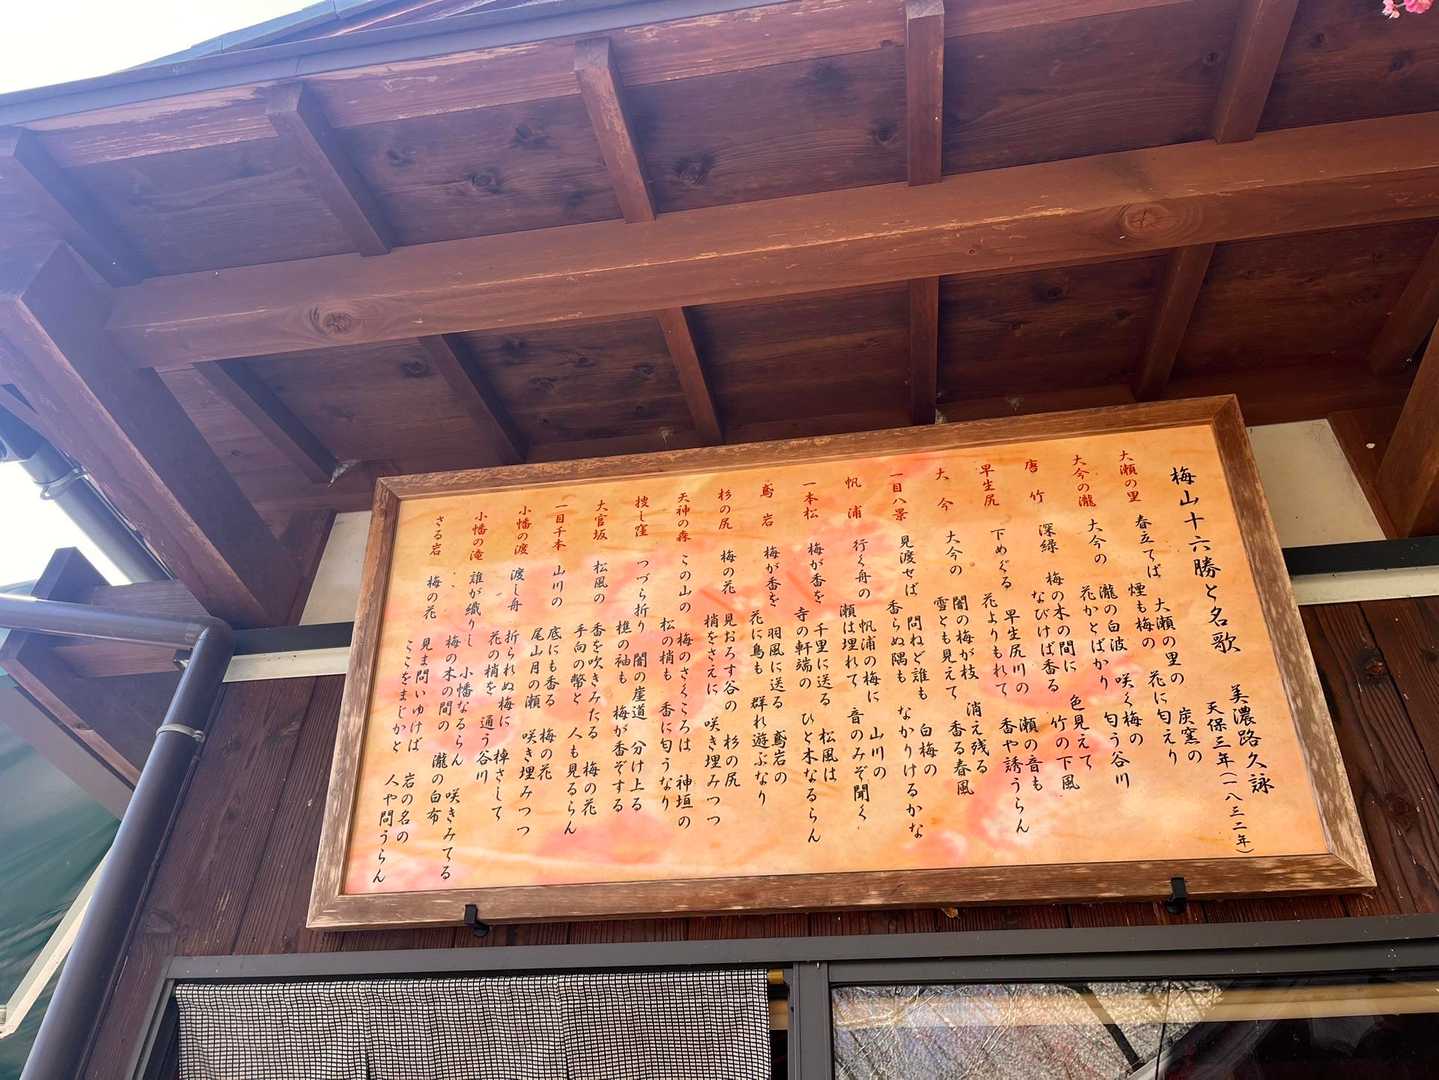 梅山十六勝と名歌
美濃路久詠
天保三年(一八三二年)
大瀬の里
春立てば 大瀬の里の 炭窯の
煙も梅の 花に匂えり
大今の瀧
大今の 瀧の白波 咲く梅の
花かとばかり 匂う谷川
唐竹
深緑 梅の木の間に 色見えて
なびけば香る 竹の下風
早生尻
下めぐる 早生尻川の 瀬の音も
花よりもれて 香や誘うらん
大今
大今の 闇の梅が枝 消え残る
雪とも見えて 香る春風
一目八景
見渡せば 問ねど誰も 白梅の
香らぬ隅も なかりけるかな
帆浦
行く舟の 帆浦の梅に 山川の
瀬は埋れて 音のみぞ聞く
一本松
梅が香を 千里に送る 松風は
寺の軒端の ひと木なるらん
鳶岩
梅が香を 羽風に送る 鳶岩の
花に鳥も 群れ遊ぶなり
杉の尻
梅の花 見おろす谷の 杉の尻
梢をさえに 咲き埋みつつ
天神の森
この山の 梅のさくころは 神垣の
松の梢も 香に匂うなり
捜し窪
つづら折り 闇の崖道 分け上る
樵の袖も 梅が香ぞする
大官坂
松風の 香を吹きみたる 梅の花
手向の幣と 人も見るらん
一目千本
山川の 底にも香る 梅の花
尾山月の瀬 咲き埋みつつ
小幡の渡
渡し舟 折られぬ梅に 棹さして
花の梢を 通う谷川
小幡の滝
誰が織りし 小幡なるらん 咲きみてる
梅の木の間の 瀧の白布
さる岩
梅の花 見ま問いゆけば 岩の名の
ここをまじかと 人や問うらん